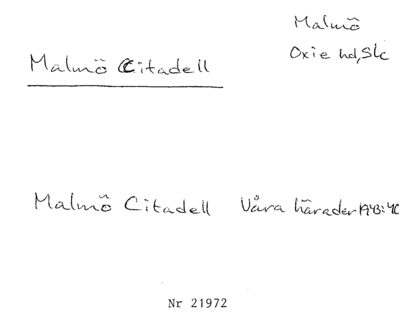 Malmö
Oxie hd, Sk
Malmö Citadell
Malmö Citadell Våra härader 1943:40
Nr 21972